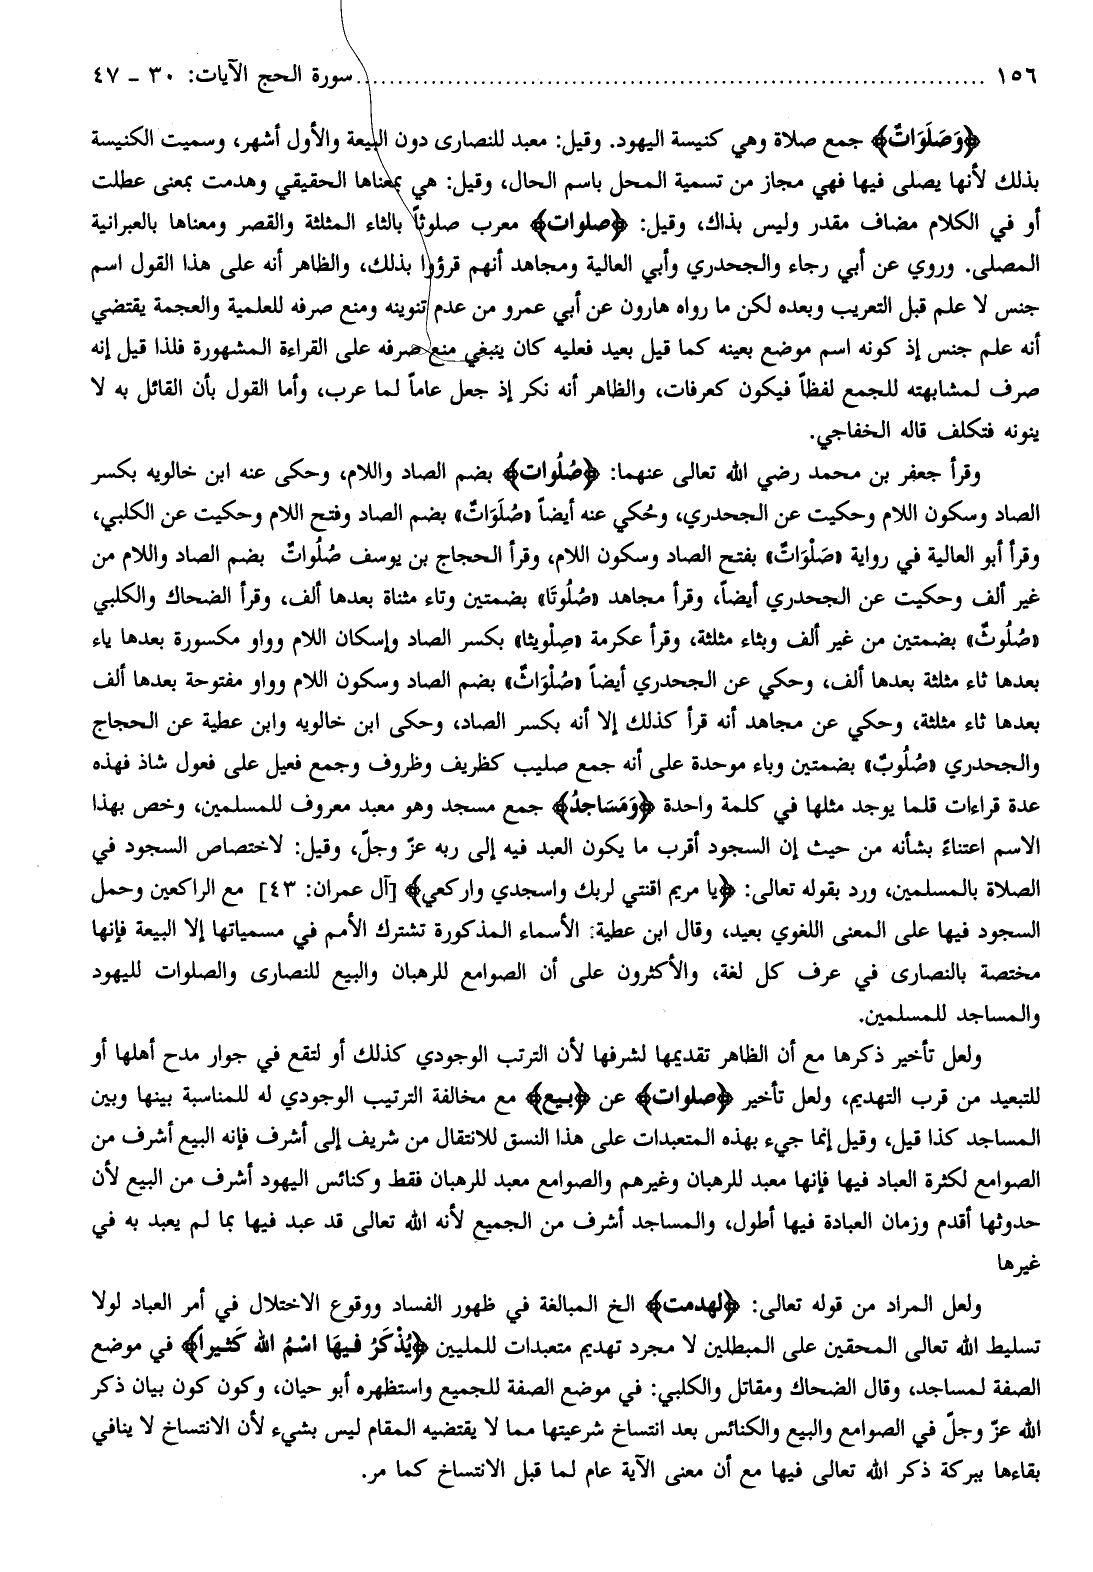 ١٥٦ ........................................ سورة الحج الآيات: ٣٠ - ٤٧
﴿وَصَلَوَاتٌ﴾ جمع صلاة وهي كنيسة اليهود. وقيل: معبد للنصارى دون البيعة والأول أشهر، وسميت الكنيسة
بذلك لأنها يصلى فيها فهي مجاز من تسمية المحل باسم الحال، وقيل: هي بمعناها الحقيقي وهدمت بمعنى عطلت
أو في الكلام مضاف مقدر وليس بذاك، وقيل: ﴿صلوات﴾ معرب صلوثاً بالثاء المثلثة والقصر ومعناها بالعبرانية
المصلى. وروي عن أبي رجاء والجحدري وأبي العالية ومجاهد أنهم قرؤوا بذلك، والظاهر أنه على هذا القول اسم
جنس لا علم قبل التعريب وبعده لكن ما رواه هارون عن أبي عمرو من عدم تنوينه ومنع صرفه للعلمية والعجمة يقتضي
أنه علم جنس إذ كونه اسم موضع بعينه كما قيل بعيد فعليه كان ينبغي منع صرفه على القراءة المشهورة فلذا قيل إنه
صرف لمشابهته للجمع لفظاً فيكون كعرفات، والظاهر أنه نكر إذ جعل عاماً لما عرب، وأما القول بأن القائل به لا
ينونه فتكلف قاله الخفاجي.
وقرأ جعفر بن محمد رضي الله تعالى عنهما: ﴿صُلُوات﴾ بضم الصاد واللام، وحكى عنه ابن خالويه بكسر
الصاد وسكون اللام وحكيت عن الجحدري، وحُكي عنه أيضاً «صُلَوَاتٌ» بضم الصاد وفتح اللام وحكيت عن الكلبي،
وقرأ أبو العالية في رواية «صَلْوَاتٌ» بفتح الصاد وسكون اللام، وقرأ الحجاج بن يوسف صُلُواتٌ بضم الصاد واللام من
غير ألف وحكيت عن الجحدري أيضاً، وقرأ مجاهد «صُلُوتَا» بضمتين وتاء مثناة بعدها ألف، وقرأ الضحاك والكلبي
«صُلُوثٌ» بضمتين من غير ألف وبثاء مثلثة، وقرأ عكرمة «صِلْويثا» بكسر الصاد وإسكان اللام وواو مكسورة بعدها ياء
بعدها ثاء مثلثة بعدها ألف، وحكي عن الجحدري أيضاً «صُلْوَاثٌ» بضم الصاد وسكون اللام وواو مفتوحة بعدها ألف
بعدها ثاء مثلثة، وحكي عن مجاهد أنه قرأ كذلك إلا أنه بكسر الصاد، وحكى ابن خالويه وابن عطية عن الحجاج
والجحدري «صُلُوبٌ» بضمتين وباء موحدة على أنه جمع صليب كظريف وظروف وجمع فعيل على فعول شاذ فهذه
عدة قراءات قلما يوجد مثلها في كلمة واحدة ﴿وَمَسَاجِدُ﴾ جمع مسجد وهو معبد معروف للمسلمين، وخص بهذا
الاسم اعتناءً بشأنه من حيث إن السجود أقرب ما يكون العبد فيه إلى ربه عزّ وجلّ، وقيل: لاختصاص السجود في
الصلاة بالمسلمين، ورد بقوله تعالى: ﴿يا مريم اقنتي لربك واسجدي واركعي﴾ [آل عمران: ٤٣] مع الراكعين وحمل
السجود فيها على المعنى اللغوي بعيد، وقال ابن عطية: الأسماء المذكورة تشترك الأمم في مسمياتها إلا البيعة فإنها
مختصة بالنصارى في عرف كل لغة، والأكثرون على أن الصوامع للرهبان والبيع للنصارى والصلوات لليهود
والمساجد للمسلمين.
ولعل تأخير ذكرها مع أن الظاهر تقديمها لشرفها لأن الترتب الوجودي كذلك أو لتقع في جوار مدح أهلها أو
للتبعيد من قرب التهديم، ولعل تأخير ﴿صلوات﴾ عن ﴿بيع﴾ مع مخالفة الترتيب الوجودي له للمناسبة بينها وبين
المساجد كذا قيل، وقيل إنما جيء بهذه المتعبدات على هذا النسق للانتقال من شريف إلى أشرف فإنه البيع أشرف من
الصوامع لكثرة العباد فيها فإنها معبد للرهبان وغيرهم والصوامع معبد للرهبان فقط وكنائس اليهود أشرف من البيع لأن
حدوثها أقدم وزمان العبادة فيها أطول، والمساجد أشرف من الجميع لأنه الله تعالى قد عبد فيها بما لم يعبد به في
غيرها
ولعل المراد من قوله تعالى: ﴿لهدمت﴾ الخ المبالغة في ظهور الفساد ووقوع الاختلال في أمر العباد لولا
تسليط الله تعالى المحقين على المبطلين لا مجرد تهديم متعبدات للمليين ﴿يُذْكَرُ فيهَا اسْمُ الله كَثيراً﴾ في موضع
الصفة لمساجد، وقال الضحاك ومقاتل والكلبي: في موضع الصفة للجميع واستظهره أبو حيان، وكون كون بيان ذكر
الله عزّ وجلّ في الصوامع والبيع والكنائس بعد انتساخ شرعيتها مما لا يقتضيه المقام ليس بشيء لأن الانتساخ لا ينافي
بقاءها ببركة ذكر الله تعالى فيها مع أن معنى الآية عام لما قبل الانتساخ كما مر.